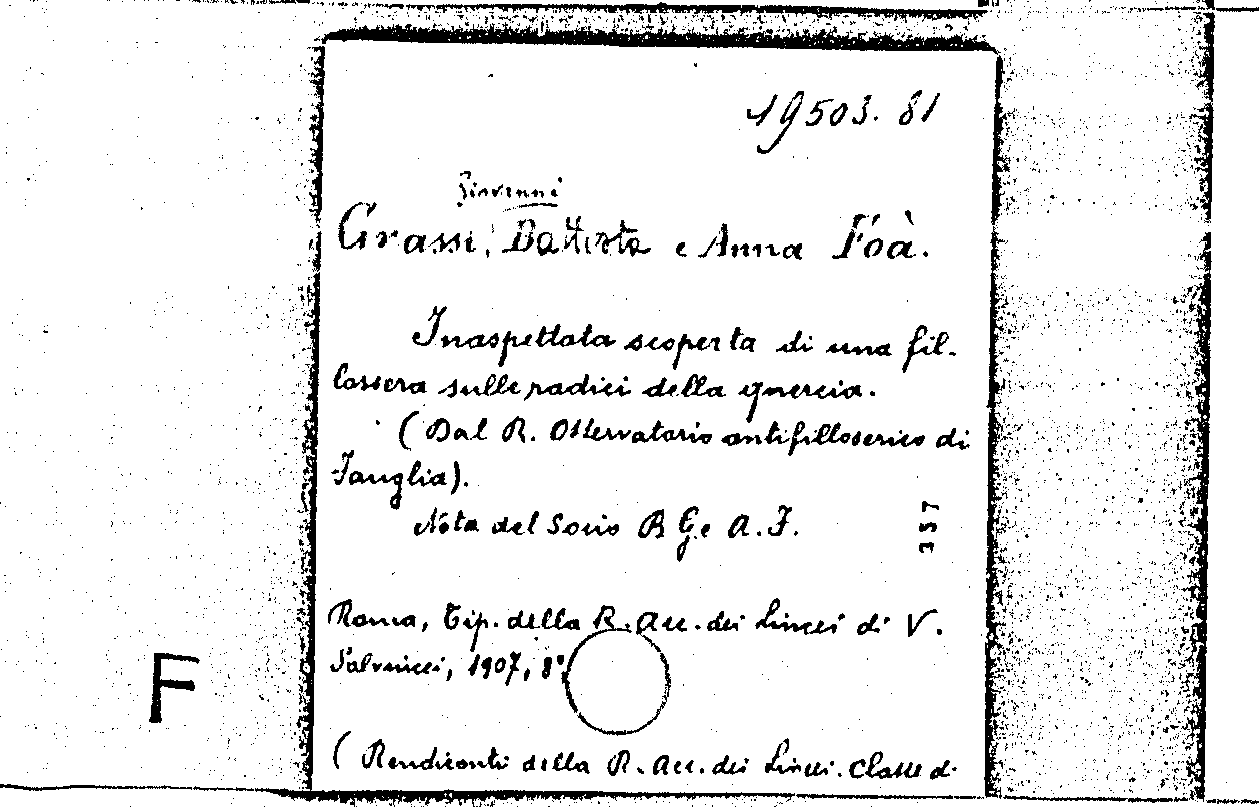 19503. 81
Giovanni
Grassi, Battista e Anna Foà.
Inaspettata scoperta di una fil-
lossera sulle radici della quercia.
(Dal R. Osservatorio antifilloserico di
Fauglia).
Nota del Socio B G. e A. F.
357
Roma, Tip. della R. Acc. dei Lincei di V.
Salviucci, 1907, 8°
F
(Rendiconti della R. Acc. dei Lincei. Classe di